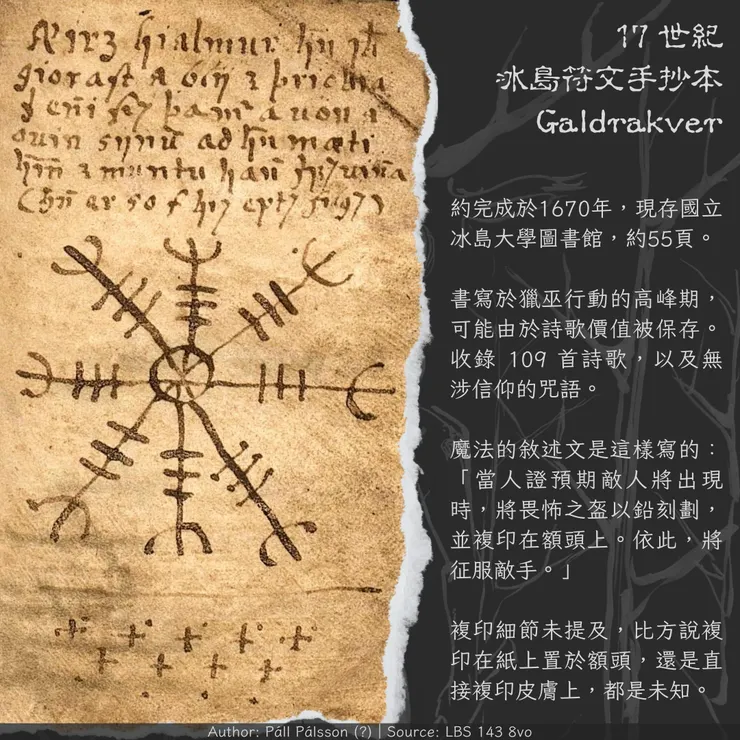 hialmur
giorast a
ad
muntu
er so
17 世紀
冰島符文手抄本
Galdrakver
約完成於1670年，現存國立
冰島大學圖書館，約55頁。
書寫於獵巫行動的高峰期，
可能由於詩歌價值被保存。
收錄 109 首詩歌，以及無
涉信仰的咒語。
魔法的敘述文是這樣寫的：
「當人證預期敵人將出現
時，將畏怖之盔以鉛刻劃，
並複印在額頭上。依此，將
征服敵手。」
複印細節未提及，比方說複
印在紙上置於額頭，還是直
接複印皮膚上，都是未知。
Author: Páll Pálsson (?) | Source: LBS 143 8vo